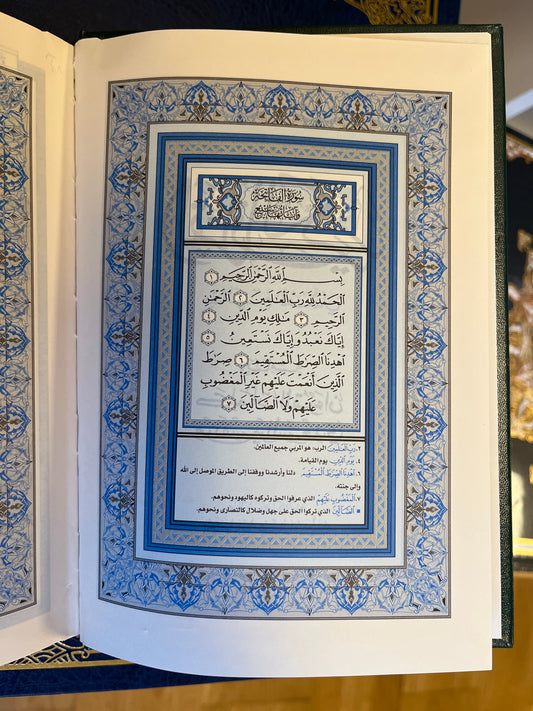 سُورَةُ الْفَاتِحَةِ
بِسْمِ اللَّهِ الرَّحْمَٰنِ الرَّحِيمِ ١
الْحَمْدُ لِلَّهِ رَبِّ الْعَالَمِينَ ٢ الرَّحْمَٰنِ
الرَّحِيمِ ٣ مَالِكِ يَوْمِ الدِّينِ ٤
إِيَّاكَ نَعْبُدُ وَإِيَّاكَ نَسْتَعِينُ ٥
اهْدِنَا الصِّرَاطَ الْمُسْتَقِيمَ ٦ صِرَاطَ
الَّذِينَ أَنْعَمْتَ عَلَيْهِمْ غَيْرِ الْمَغْضُوبِ
عَلَيْهِمْ وَلَا الضَّالِّينَ ٧
٢. رَبِّ الْعَالَمِينَ الرب: هو المربي جميع العالمين.
٤. يَوْمِ الدِّينِ يوم القيامة.
٦. اهْدِنَا الصِّرَاطَ الْمُسْتَقِيمَ دلنا وأرشدنا ووفقنا إلى الطريق الموصل إلى الله
وإلى جنته.
٧. الْمَغْضُوبِ عَلَيْهِمْ الذي عرفوا الحق وتركوه كاليهود ونحوهم.
■ الضَّالِّينَ الذي تركوا الحق على جهل وضلال كالنصارى ونحوهم.